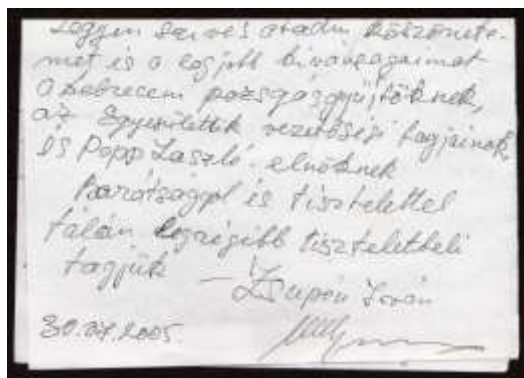 Legyen szives átadni köszönete-
met is a legjobb kivánságaimat
a debreceni pozsgásgyűjtöknek,
az Egyesülettik vezetőségi tagjainok,
és Popp László - elnöknek
Barátsággal és tisztelettel
talán legrégibb tiszteletbeli
tagjük - Zsupán Iván
30.07.2005.